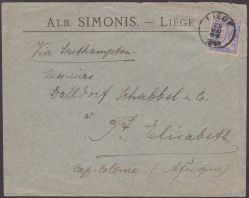 ALB. SIMONIS. – LIÉGE
LIEGE
Via Southampton.
Messieurs
Dalldorf Schabbel & Co.
à
Pt. Elisabeth
Cap-Colonie (Afrique)